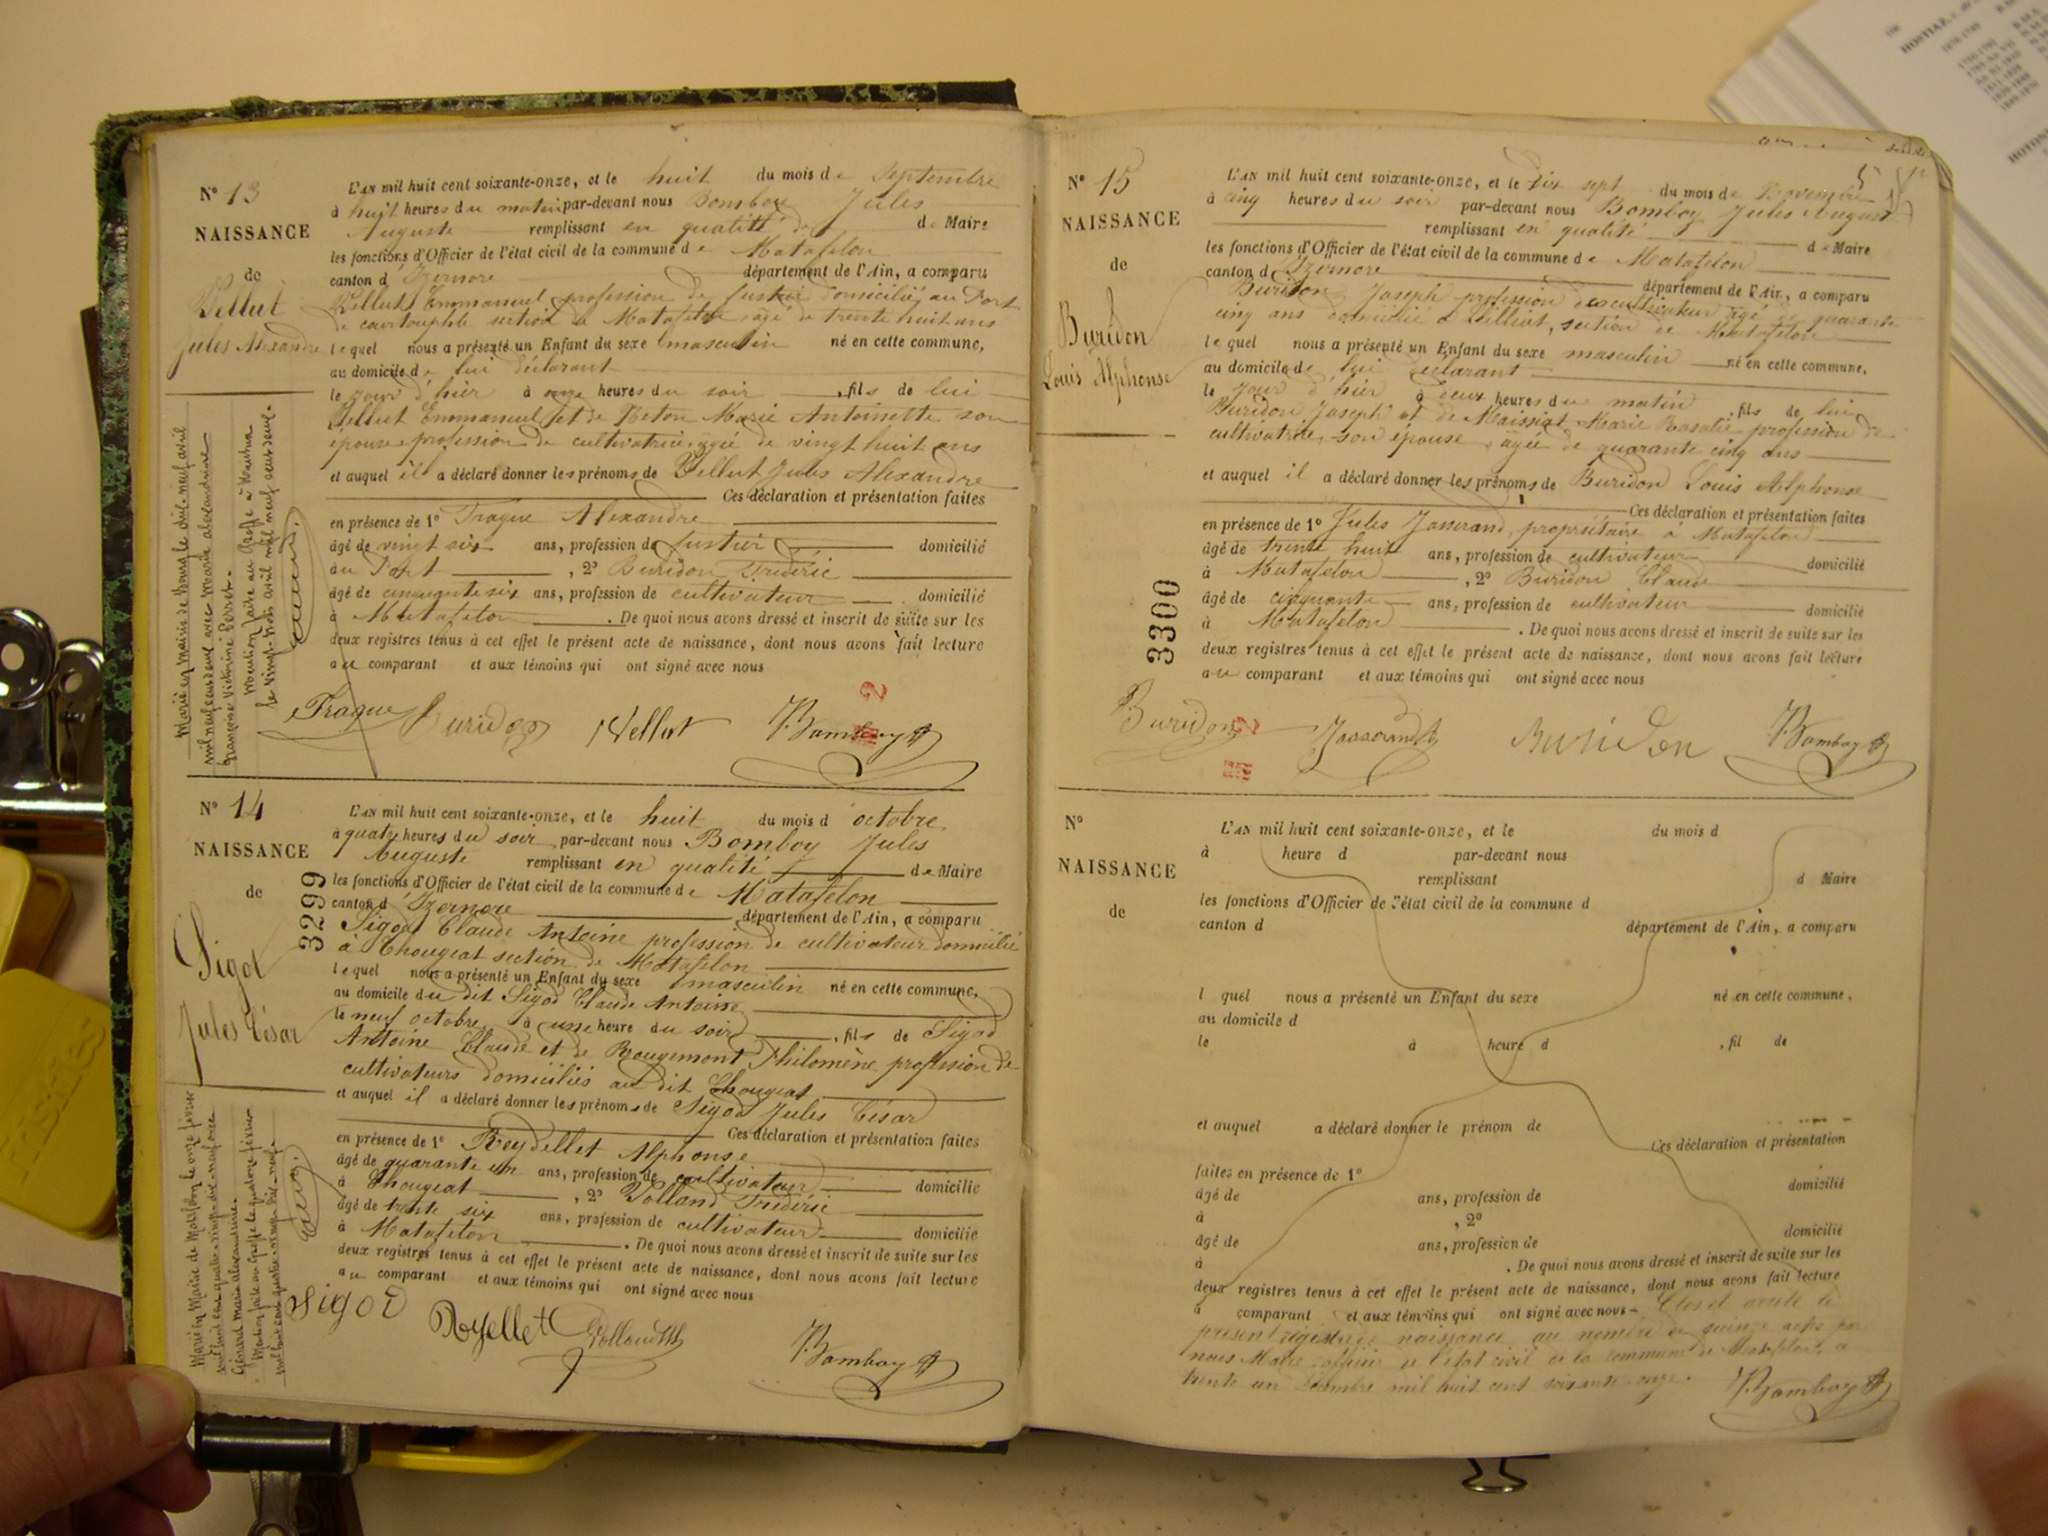 N° 13
NAISSANCE
de
Vellut
Jules Alexandre
L'AN mil huit cent soixante-onze, et le huit du mois de Septembre
à huit heures du matin par-devant nous Bomboy Jules
Auguste remplissant en qualité de Maire
les fonctions d'Officier de l'état civil de la commune de Matafelon
canton d'Izernore département de l'Ain, a comparu
Vellut Emmanuel profession de fustier domicilié au Port
section de Matafelon agé de trente huit ans
lequel nous a présenté un Enfant du sexe masculin né en cette commune,
au domicile de lui déclarant
le jour d'hier à onze heures du soir, fils de lui
Vellut Emmanuel et de Marie Antoinette son
épouse profession de cultivatrice agée de vingt huit ans
et auquel il a déclaré donner les prénoms de Vellut Jules Alexandre
Ces déclaration et présentation faites
en présence de 1° Tragué Alexandre
âgé de vingt six ans, profession de fustier domicilié
au Port, 2° Buridon Frédéric
âgé de cinquante six ans, profession de cultivateur domicilié
à Matafelon. De quoi nous avons dressé et inscrit de suite sur les
deux registres tenus à cet effet le présent acte de naissance, dont nous avons fait lecture
au comparant et aux témoins qui ont signé avec nous
Trague Buridon Vellut Bomboy
Marié en mairie de le dix-neuf avril
mil neuf cent avec Marie Alexandrine
Françoise Victorine Perret.
Mention faite au Greffe à Nantua
le vingt-trois avril mil neuf cent
N° 14
NAISSANCE
de
Sigod
Jules César
3299
L'AN mil huit cent soixante-onze, et le huit du mois d'octobre
à quatre heures du soir par-devant nous Bomboy Jules
Auguste remplissant en qualité de Maire
les fonctions d'Officier de l'état civil de la commune de Matafelon
canton d'Izernore département de l'Ain, a comparu
Sigod Claude Antoine profession de cultivateur domicilié
à Chougeat section de Matafelon
lequel nous a présenté un Enfant du sexe masculin né en cette commune,
au domicile du dit Sigod Claude Antoine
le neuf octobre à une heure du soir, fils de Sigod
Antoine Claude et de Rougemont Philomène profession de
cultivateurs domiciliés au dit Chougeat
et auquel il a déclaré donner les prénoms de Sigod Jules César
Ces déclaration et présentation faites
en présence de 1° Reydellet Alphonse
âgé de quarante un ans, profession de cultivateur domicilié
à Chougeat, 2° Rolland Frédéric
âgé de trente six ans, profession de cultivateur domicilié
à Matafelon. De quoi nous avons dressé et inscrit de suite sur les
deux registres tenus à cet effet le présent acte de naissance, dont nous avons fait lecture
au comparant et aux témoins qui ont signé avec nous
Sigod Reydellet Rolland Bomboy
Marié en Mairie de Matafelon le onze février
mil huit cent quatre-vingt-dix-neuf avec
Génard Marie Alexandrine.
Mention faite au Greffe le quatorze février
mil huit cent quatre-vingt-dix-neuf
N° 15
NAISSANCE
de
Buridon
Louis Alphonse
3300
L'AN mil huit cent soixante-onze, et le dix sept du mois de Novembre
à cinq heures du soir par-devant nous Bomboy Jules August
remplissant en qualité de Maire
les fonctions d'Officier de l'état civil de la commune de Matafelon
canton d'Izernore département de l'Ain, a comparu
Buridon Joseph profession de cultivateur agé de quarante
cinq ans domicilié à section de Matafelon
lequel nous a présenté un Enfant du sexe masculin né en cette commune,
au domicile de lui déclarant
le jour d'hier à deux heures du matin, fils de lui
Buridon Joseph et de Maissiat Marie Rosalie profession de
cultivatrice son épouse agée de quarante cinq ans
et auquel il a déclaré donner les prénoms de Buridon Louis Alphonse
Ces déclaration et présentation faites
en présence de 1° Jules Jasserand, propriétaire à Matafelon
âgé de trente huit ans, profession de cultivateur domicilié
à Matafelon, 2° Buridon Claude
âgé de cinquante ans, profession de cultivateur domicilié
à Matafelon. De quoi nous avons dressé et inscrit de suite sur les
deux registres tenus à cet effet le présent acte de naissance, dont nous avons fait lecture
au comparant et aux témoins qui ont signé avec nous
Buridon Jasserand Buridon Bomboy
N°
NAISSANCE
de
L'AN mil huit cent soixante-onze, et le du mois d
à heure d par-devant nous
remplissant d Maire
les fonctions d'Officier de l'état civil de la commune d
canton d département de l'Ain, a comparu
l quel nous a présenté un Enfant du sexe né en cette commune,
au domicile d
le à heure d, fil de
et auquel a déclaré donner le prénom de
Ces déclaration et présentation
faites en présence de 1°
âgé de ans, profession de domicilié
à, 2°
âgé de ans, profession de domicilié
à. De quoi nous avons dressé et inscrit de suite sur les
deux registres tenus à cet effet le présent acte de naissance, dont nous avons fait lecture
a comparant et aux témoins qui ont signé avec nous - Clos et arrêté le
présent registre de naissance au nombre de quinze actes par
nous Maire officier de l'état civil de la commune de Matafelon, le
trente un Décembre mil huit cent soixante onze.
Bomboy